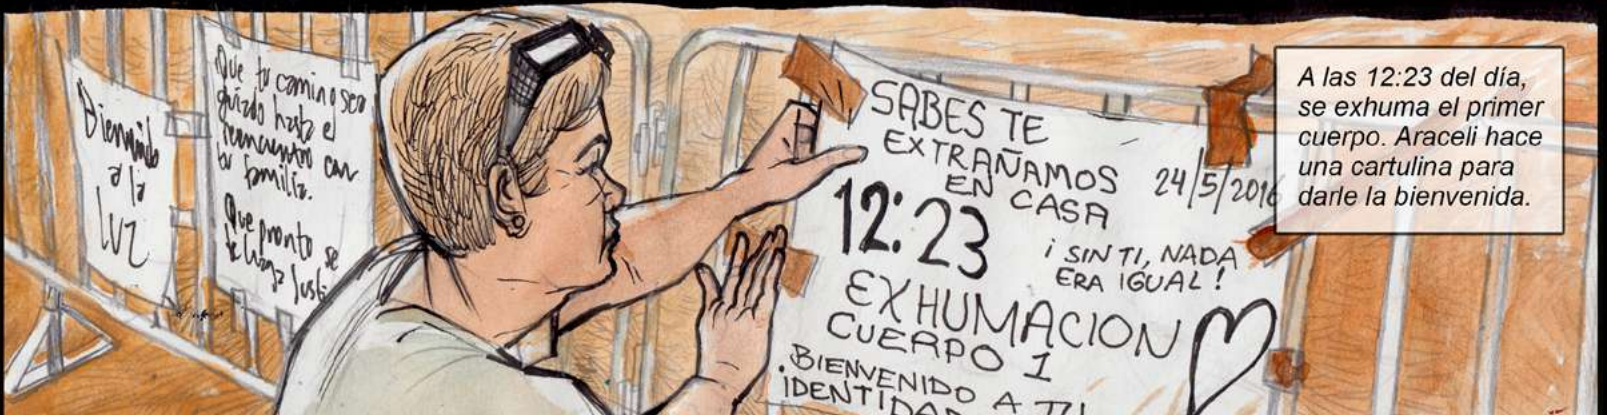 Bienvenido
a la
luz
Que tu camino sea
guiado hasta el
reencuentro con
tu familia.
Que pronto se
te haga justi
SABES TE
EXTRAÑAMOS
EN CASA
24/5/2016
12:23
¡SIN TI, NADA
ERA IGUAL!
EXHUMACION
CUERPO 1
.BIENVENIDO A TU
IDENTIDAD
A las 12:23 del día,
se exhuma el primer
cuerpo. Araceli hace
una cartulina para
darle la bienvenida.